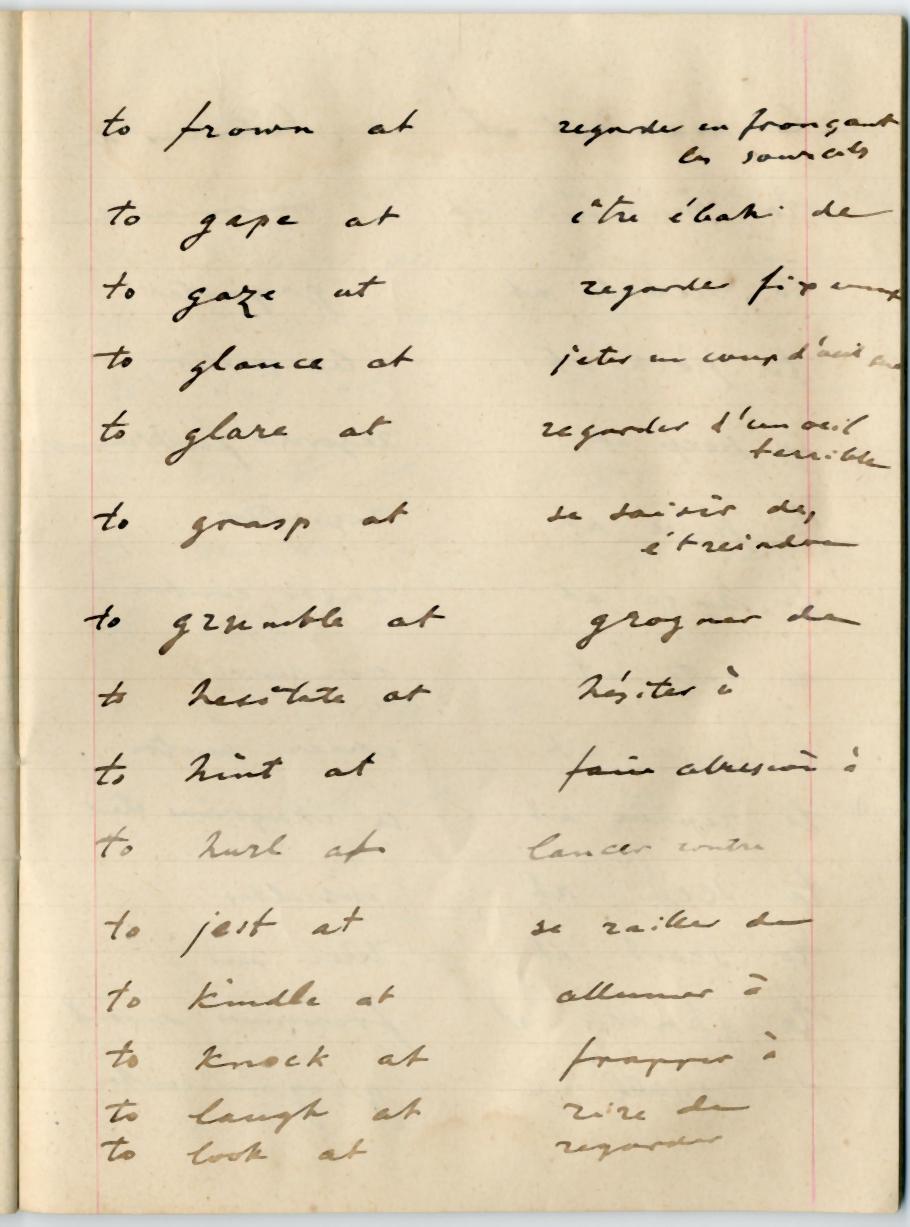 to frown at regarder en fronçant
les sourcils
to gape at être ébahi de
to gaze at regarder fixement
to glance at jeter un coup d'œil sur
to glare at regarder d'un œil
terrible
to grasp at se saisir de,
étreindre
to grumble at grogner de
to hesitate at hésiter à
to hint at faire allusion à
to hurl at lancer contre
to jest at se railler de
to kindle at allumer à
to knock at frapper à
to laugh at rire de
to look at regarder